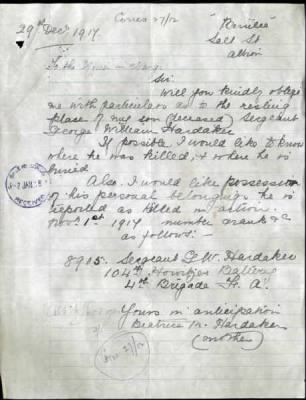 29th Dec. 1917
Corres 27/12
Salt St
Albion
To the Officer in Charge.
Sir
Will you kindly oblige
me with particulars as to the resting
place of my son (deceased) Sergeant
George William Hardaker
If possible I would like to know
where he was killed, & where he is
buried.
Also I would like possession
of his personal belongings he is
reported as killed in action.
Nov 21st 1917 number & rank &c
as follows:-
8915. Sergeant G. W. Hardaker
104th Howitzer Battery
4th Brigade F. A.
Yours in anticipation
Beatrice M. Hardaker
(mother)